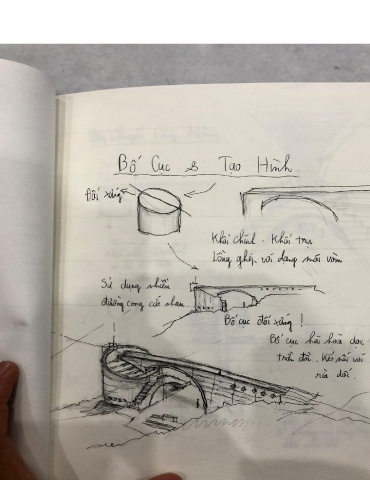 Bố Cục & Tạo Hình.
Đối xứng
Khối chính. Khối trụ
Lồng ghép với dạng mái vòm
Sử dụng nhiều
đường cong cắt nhau
Bố cục đối xứng !
Bố cục hài hoà dọc
triền đồi. Kết nối với